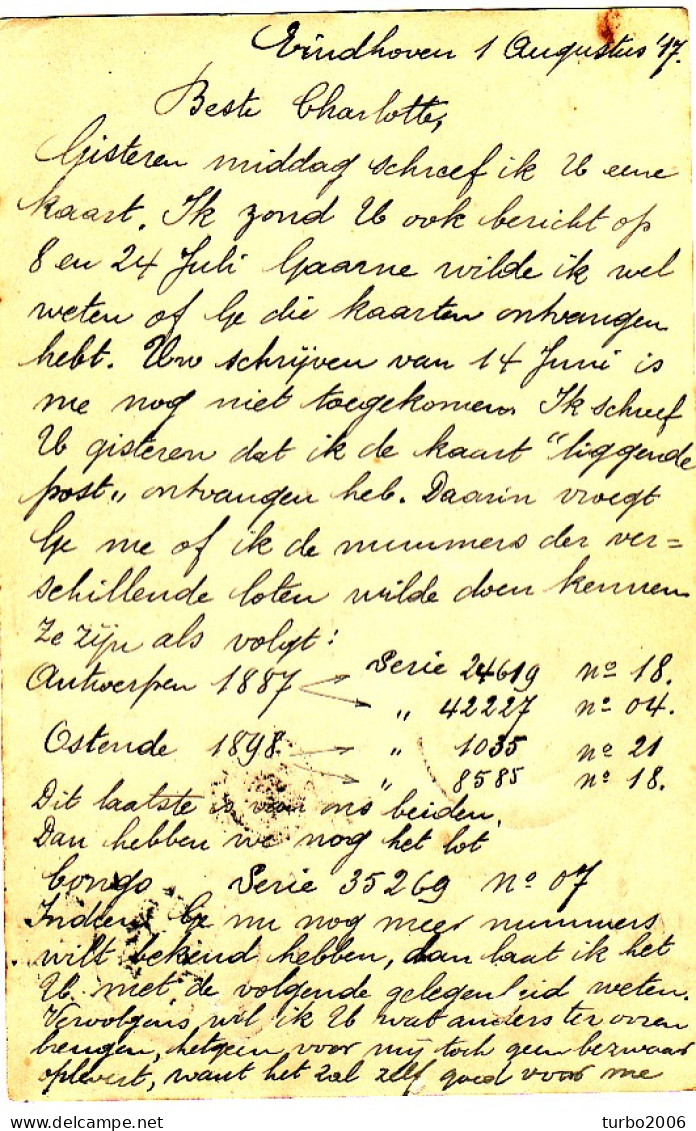 Eindhoven 1 Augustus '17.
Beste Charlotte,
Gisteren middag schreef ik U eene
kaart. Ik zond U ook bericht op
8 en 24 Juli Gaarne wilde ik wel
weten of Ge die kaarten ontvangen
hebt. Uw schrijven van 14 Juni is
me nog niet toegekomen. Ik schreef
U gisteren dat ik de kaart "liggende
post„ ontvangen heb. Daarin vroegt
Ge me of ik de nummers der ver=
schillende loten wilde doen kennen
Ze zijn als volgt:
Antwerpen 1887 → Serie 24619 nº 18.
→ „ 42227 nº 04.
Ostende 1898 → „ 1035 nº 21
→ „ 8585 nº 18.
Dit laatste is van ons beiden.
Dan hebben we nog het lot
Congo Serie 35269 Nº 07
Indien Ge nu nog meer nummers
wilt bekend hebben, dan laat ik het
U met de volgende gelegenheid weten.
Vervolgens wil ik U wat anders ter ooren
brengen, hetgeen voor mij toch geen bezwaar
oplevert, want het zal zelf goed voor me
turbo2006